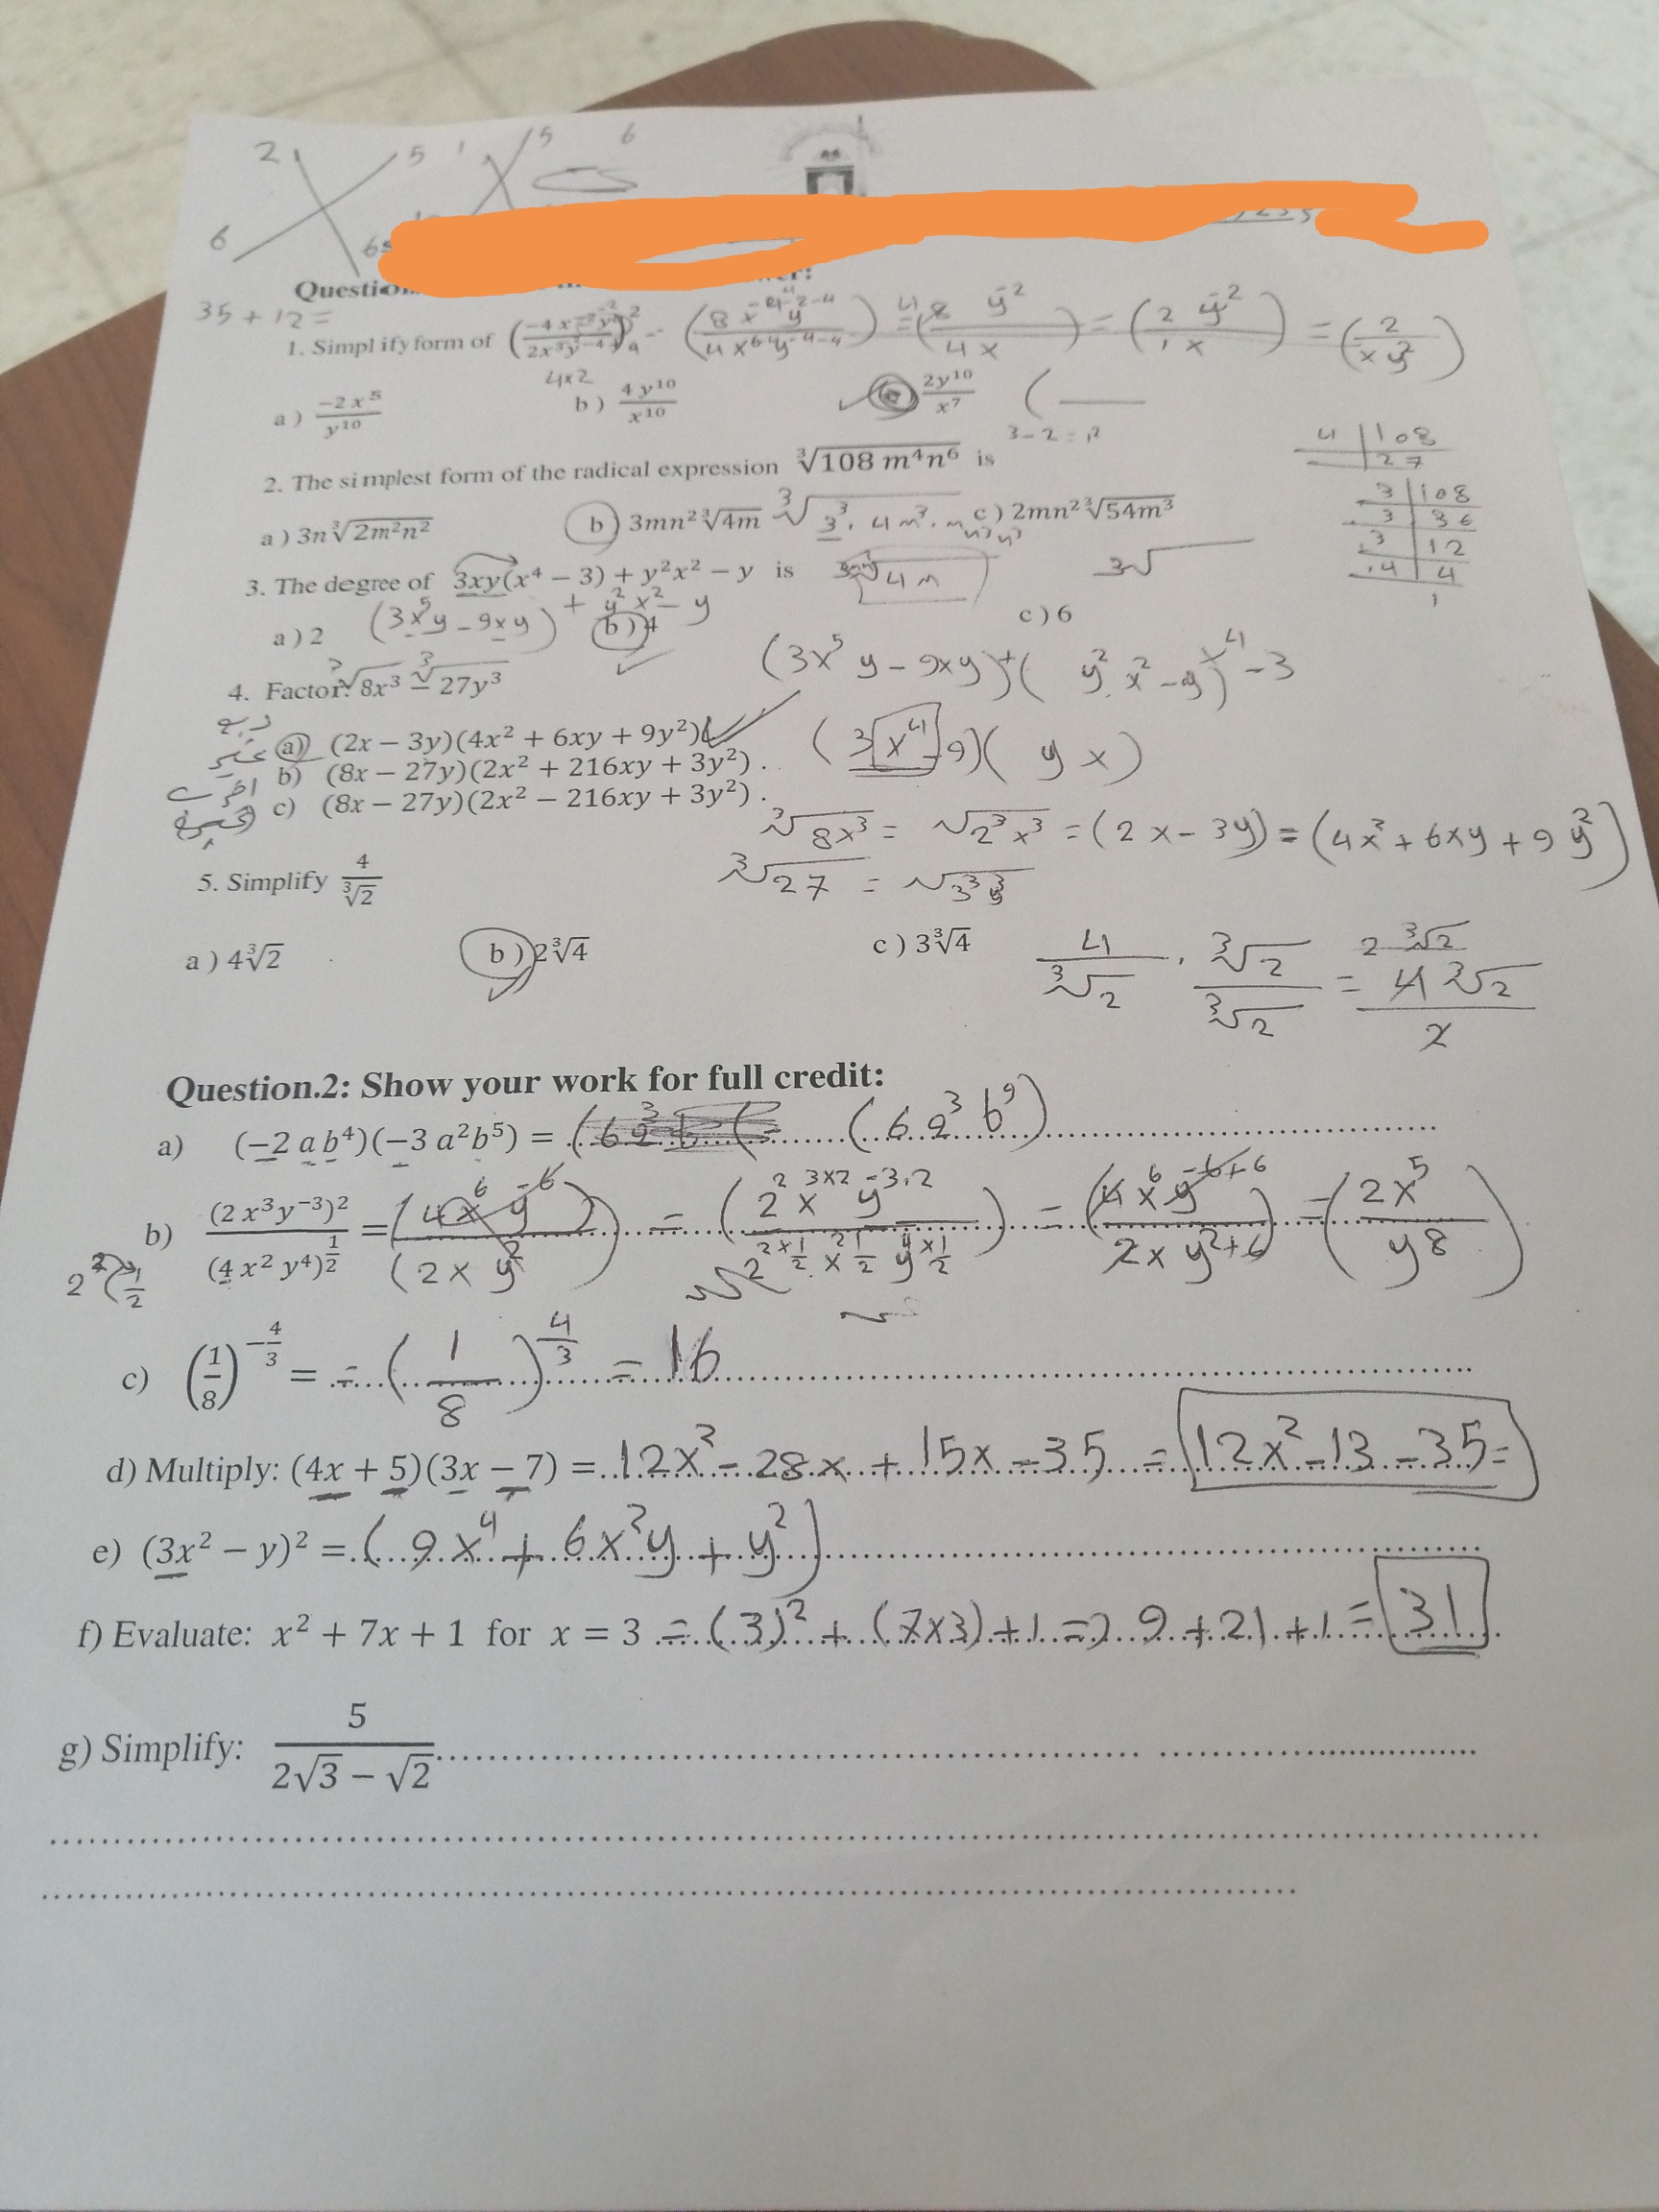 2 5 1 5 6
6
35 + 12 =
1. Simplify form of
= (2 y⁻² / 1 x) = (2 / x y²)
4x2
a) −2x⁵ / y¹⁰ b) 4y¹⁰ / x¹⁰ 2y¹⁰ / x⁷
3 − 2 =
4 | 108
27
2. The simplest form of the radical expression ∛(108 m⁴n⁶) is
3 | 108
3 | 36
3 | 12
4 | 4
1
a) 3n∛(2m²n²) b) 3mn²∛(4m) c) 2mn²∛(54m³)
3. The degree of 3xy(x⁴ − 3) + y²x² − y is
(3x⁵y − 9xy) + y²x² − y
a) 2 b) 4 c) 6
4. Factor: 8x³ − 27y³
a) (2x − 3y)(4x² + 6xy + 9y²)
b) (8x − 27y)(2x² + 216xy + 3y²).
c) (8x − 27y)(2x² − 216xy + 3y²).
∛8x³ = √2³x³ = (2x − 3y) = (4x² + 6xy + 9y²)
∛27 = √3³y³
5. Simplify 4 / ∛2
a) 4∛2 b) 2∛4 c) 3∛4
4 / ∛2 . ∛2 / ∛2 = 4∛2 / 2
2∛2
Question.2: Show your work for full credit:
a) (−2 a b⁴)(−3 a²b⁵) = (6a³b⁹)
b) (2x³y⁻³)² / (4x²y⁴)^(1/2) = (4x⁶y⁻⁶) / (2xy²) = (2²x^(3x2)y^(−3.2) / 2^(2x1/2) . x^(2 1/2) y^(4x1/2)) = (4x⁶y^(−6+6) / 2xy^(2+6)) = (2x⁵ / y8)
c) (1/8)^(−4/3) = = (1/8)^(4/3) = 16
d) Multiply: (4x + 5)(3x − 7) = 12x² − 28x + 15x − 35 = 12x² − 13 − 35 =
e) (3x² − y)² = (9x⁴ + 6x²y + y²)
f) Evaluate: x² + 7x + 1 for x = 3 = (3)² + (7x3) + 1 => 9 + 21 + 1 = 31
g) Simplify: 5 / (2√3 − √2)